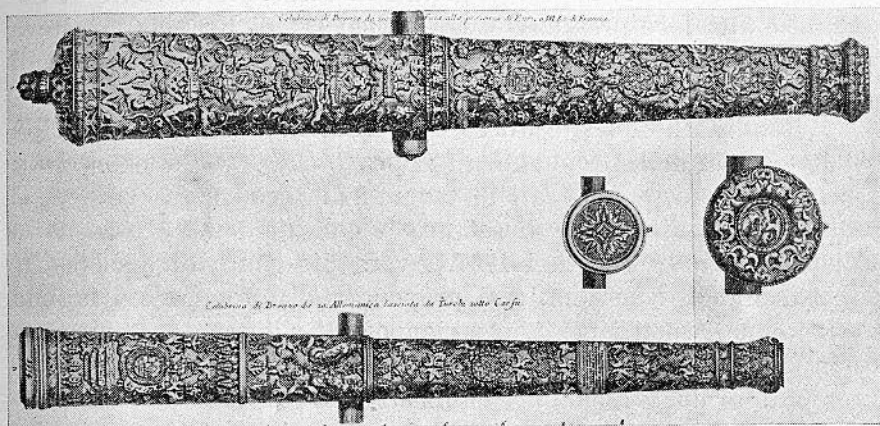 Colubrina di Bronzo da alla presenza di III Re di Francia.
Colubrina di Bronzo da 12. Allemanica lasciata da Turchi sotto Corfù.